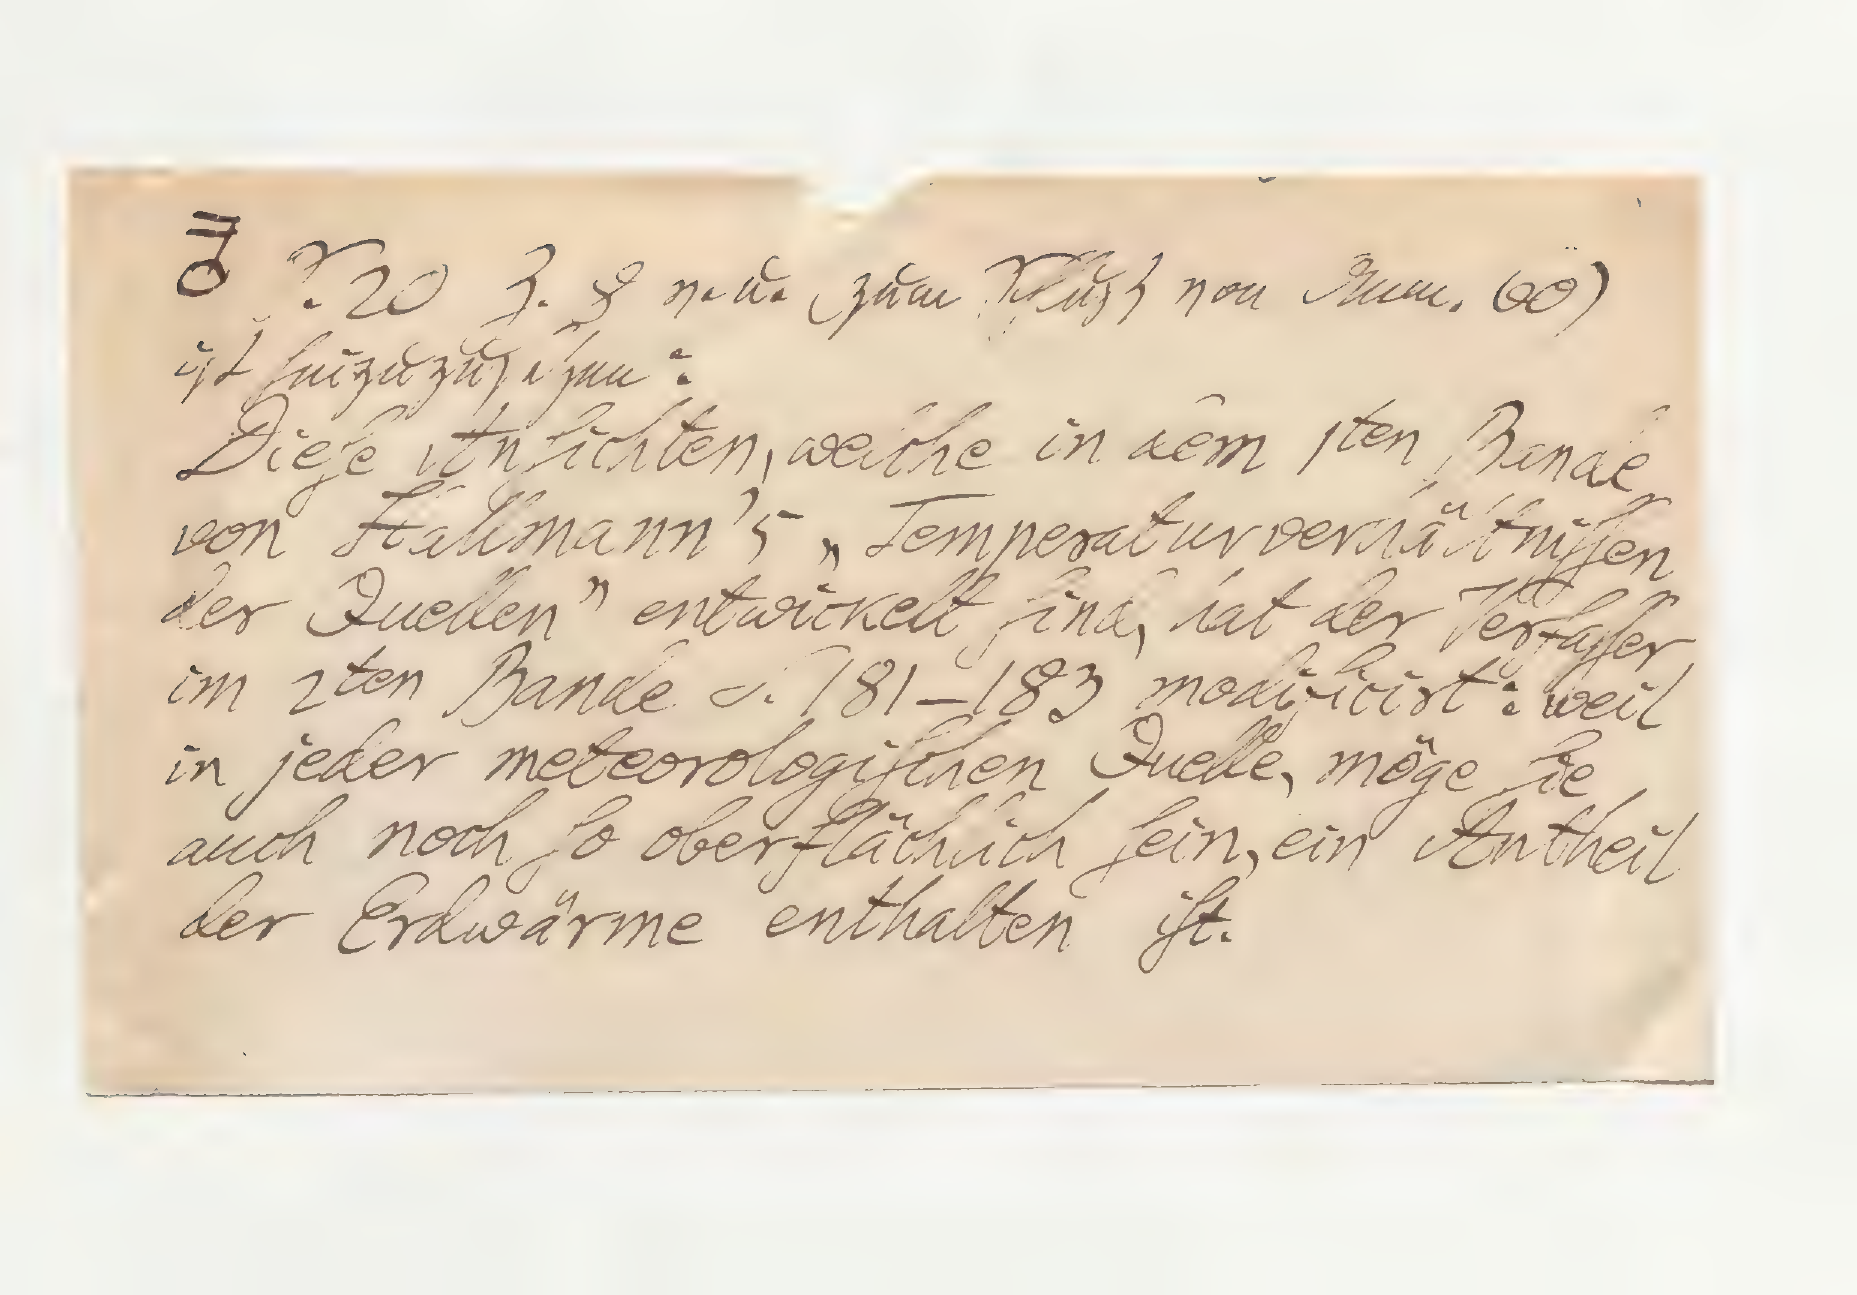 S. 20 Z. 8 v. u. (zum Schluß von Anm. 60)
ist hinzuzusetzen:
Dieſe Anſichten, welche in dem 1ten Bande
von Hallmann's „Temperaturverhältniſſen
der Quellen" entwickelt ſind, hat der Verfaſſer
im 2ten Bande S. 181–183 modificirt: weil
in jeder meteorologiſchen Quelle, möge ſie
auch noch ſo oberflächlich ſein, ein Antheil
der Erdwärme enthalten iſt.